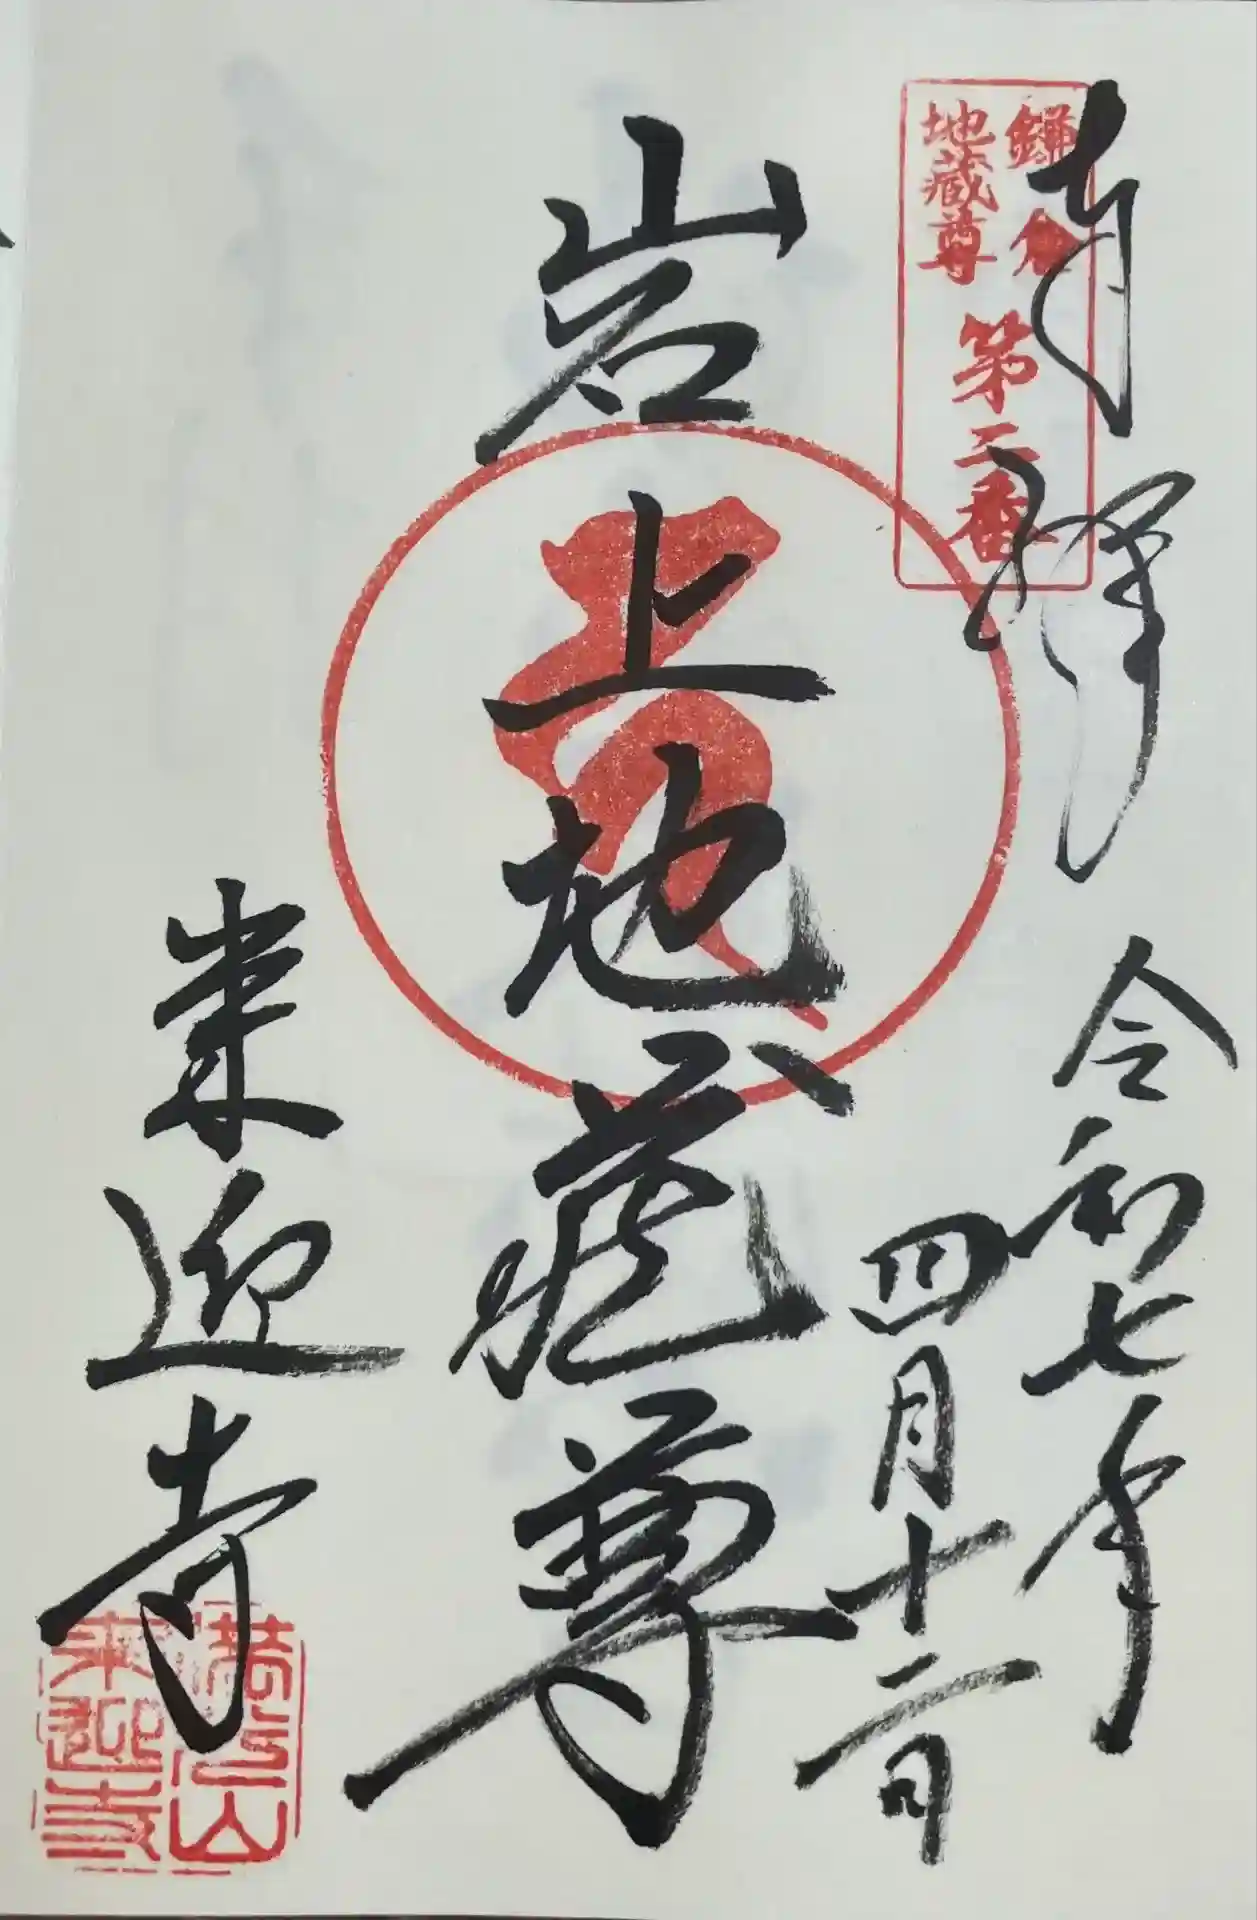 奉拝
鎌倉
地蔵尊
第二番
令和七年
四月十二日
岩上地蔵尊
来迎寺
満光山
来迎寺